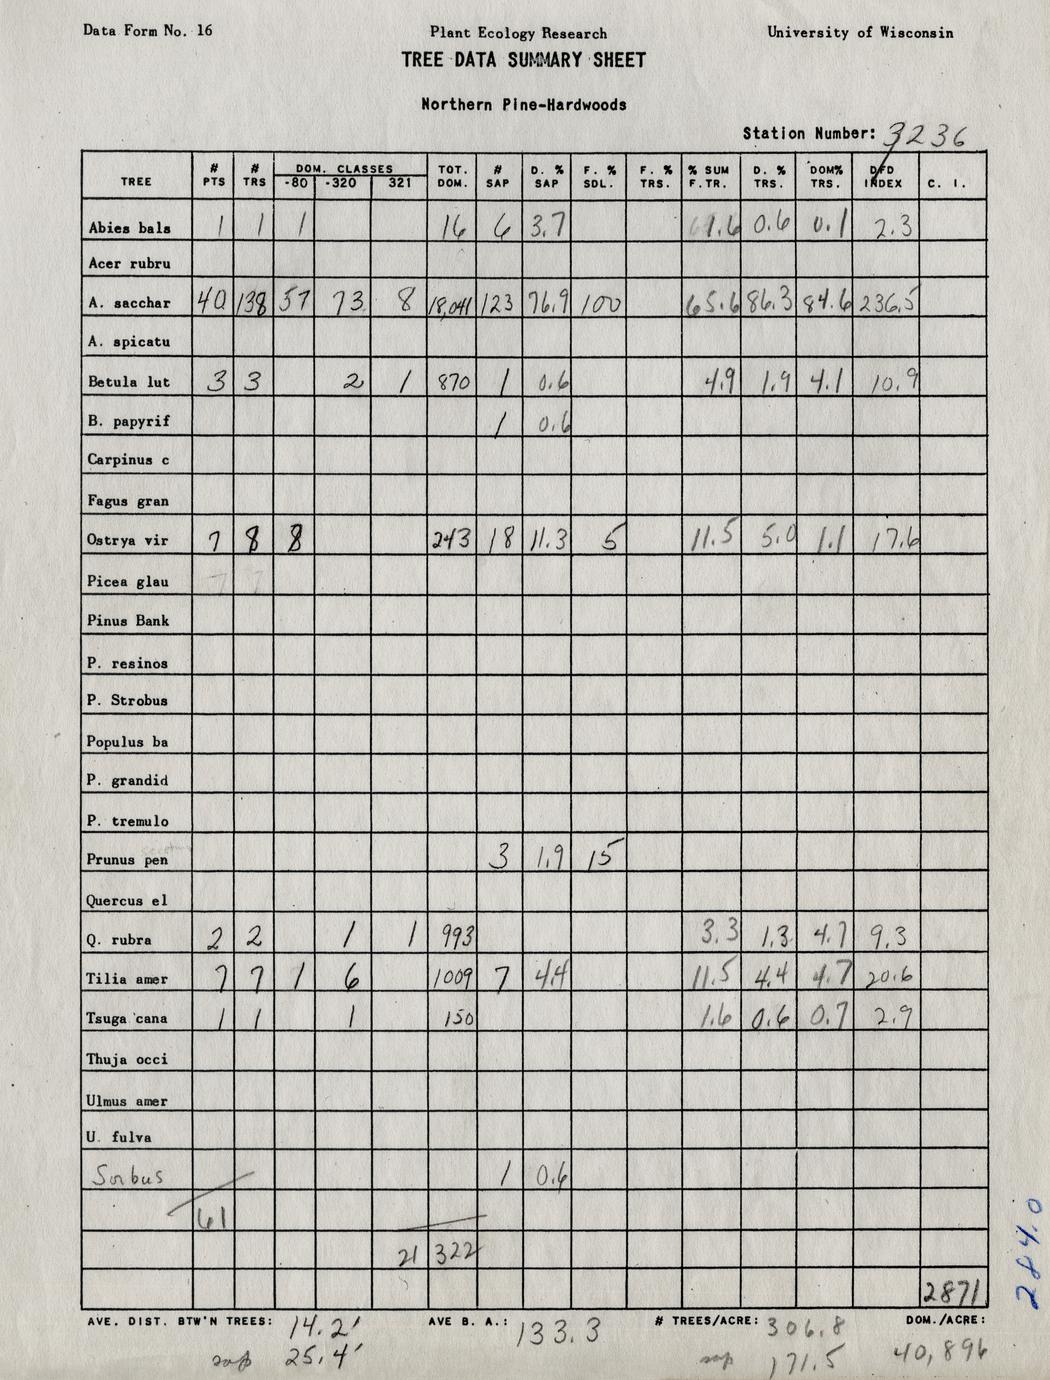 Data Form No. 16 Plant Ecology Research University of Wisconsin
TREE DATA SUMMARY SHEET
Northern Pine-Hardwoods
Station Number: 3236
TREE # PTS # TRS DOM. CLASSES -80 -320 321 TOT. DOM. # SAP D. % SAP F. % SDL. F. % TRS. % SUM F.TR. D. % TRS. DOM% TRS. DFD INDEX C. I.
Abies bals 1 1 1 16 6 3.7 1.6 0.6 0.1 2.3
Acer rubru
A. sacchar 40 138 57 73 8 18,041 123 76.9 100 65.6 86.3 84.6 236.5
A. spicatu
Betula lut 3 3 2 1 870 1 0.6 4.9 1.9 4.1 10.9
B. papyrif 1 0.6
Carpinus c
Fagus gran
Ostrya vir 7 8 8 243 18 11.3 5 11.5 5.0 1.1 17.6
Picea glau 7 7
Pinus Bank
P. resinos
P. Strobus
Populus ba
P. grandid
P. tremulo
Prunus pen 3 1.9 15
Quercus el
Q. rubra 2 2 1 1 993 3.3 1.3 4.7 9.3
Tilia amer 7 7 1 6 1009 7 4.4 11.5 4.4 4.7 20.6
Tsuga cana 1 1 1 150 1.6 0.6 0.7 2.9
Thuja occi
Ulmus amer
U. fulva
Sorbus 1 0.6
61
21 322
2871
284.0
AVE. DIST. BTW'N TREES: 14.2' AVE B. A.: 133.3 # TREES/ACRE: 306.8 DOM./ACRE:
sap 25.4' sap 171.5 40,896